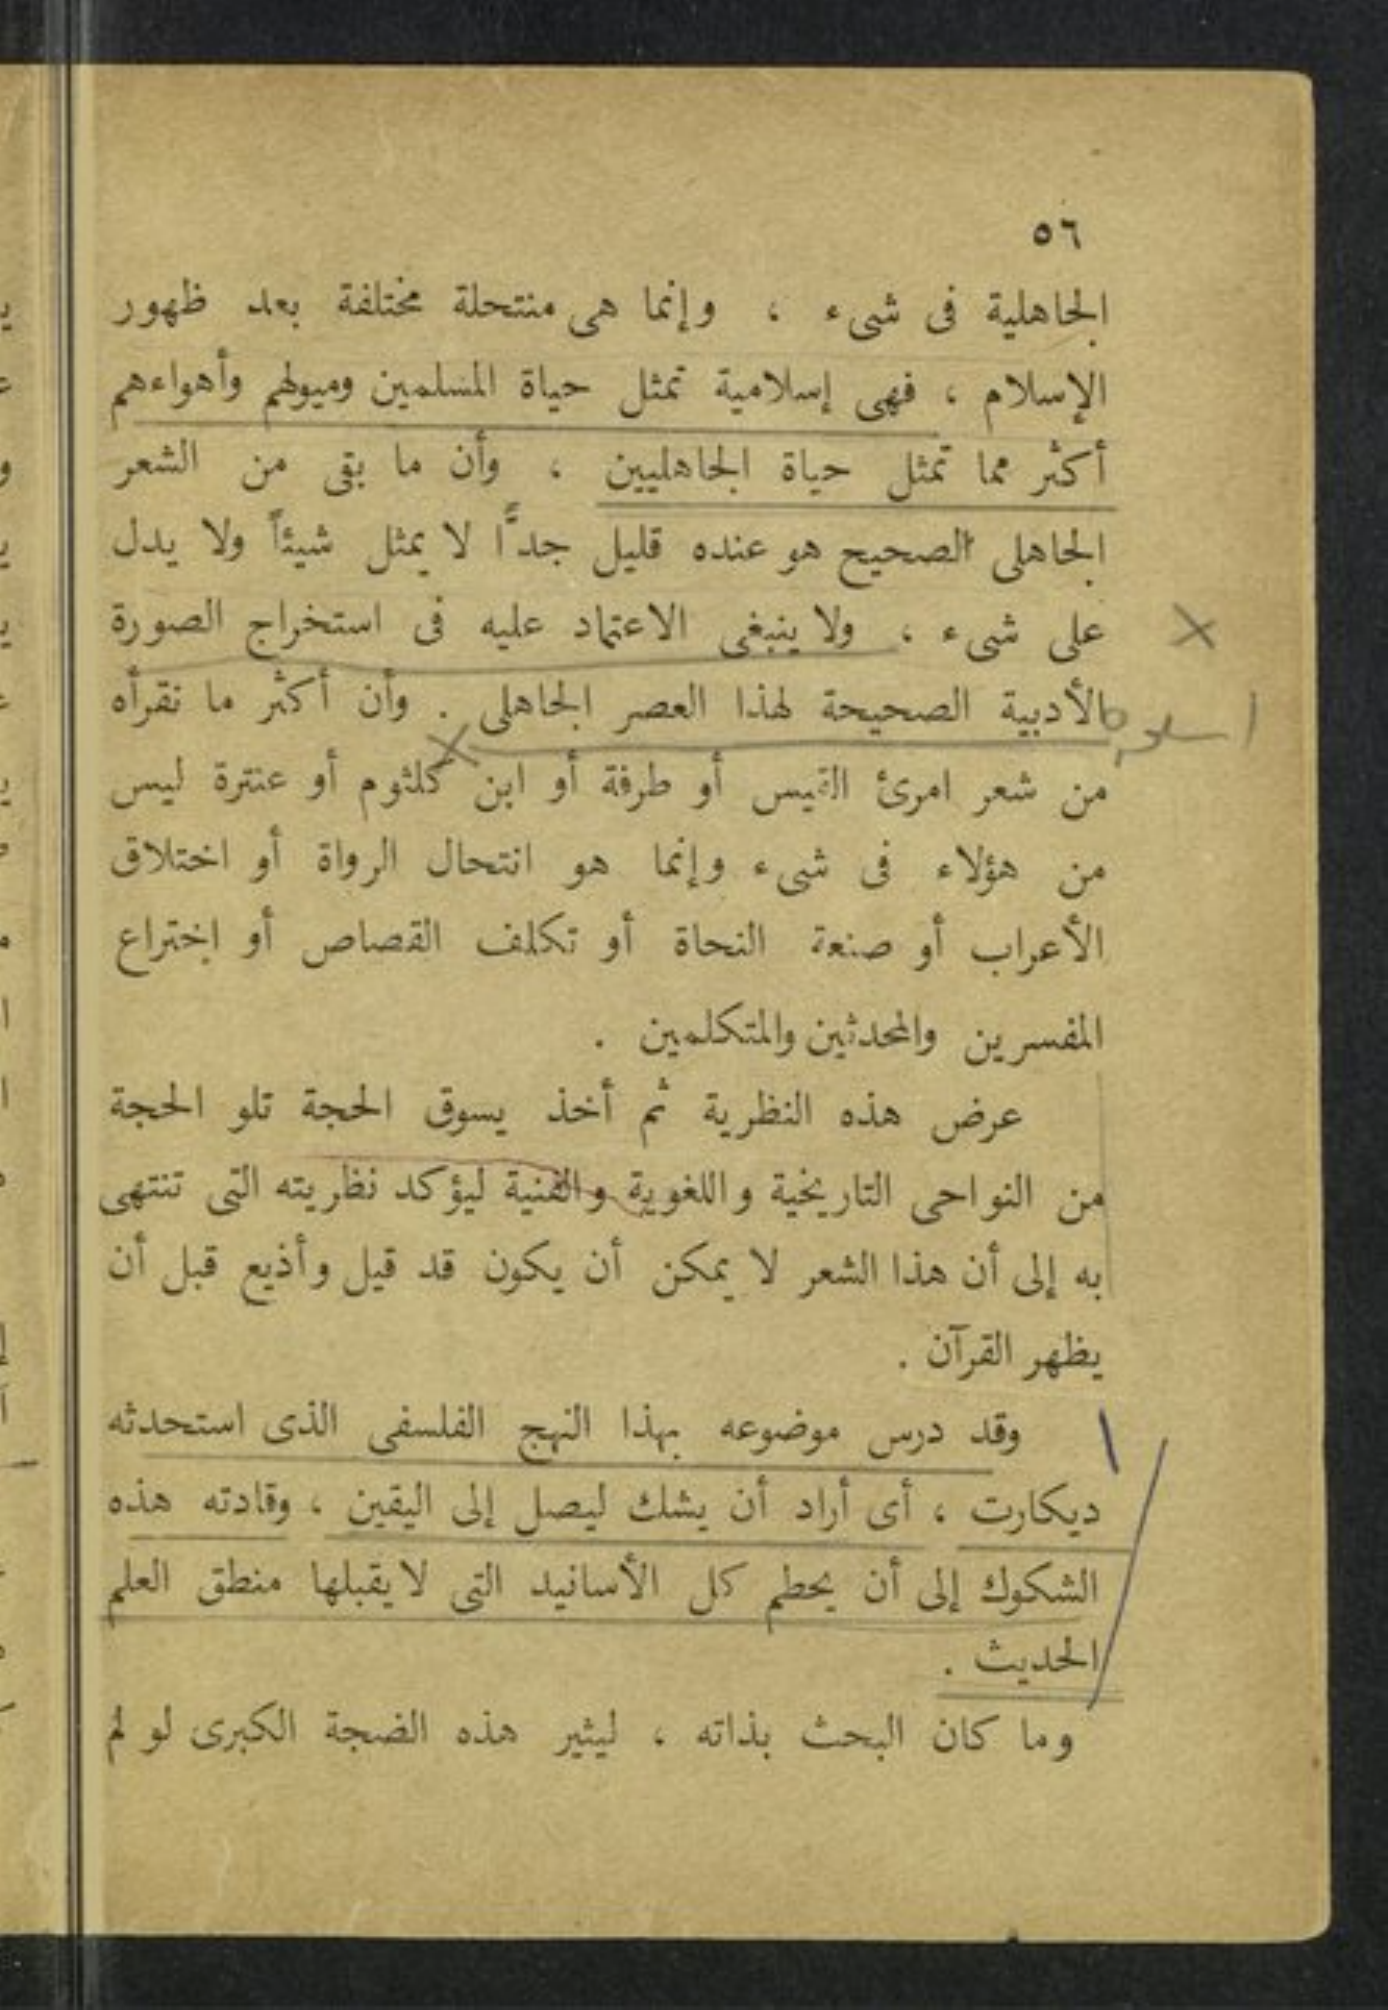 ٥٦
الجاهلية فى شىء ، وإنما هى منتحلة مختلفة بعد ظهور
الإسلام ، فهى إسلامية تمثل حياة المسلمين وميولهم وأهواءهم
أكثر مما تمثل حياة الجاهليين ، وأن ما بقى من الشعر
الجاهلى الصحيح هو عنده قليل جدًّا لا يمثل شيئاً ولا يدل
على شىء ، ولا ينبغى الاعتماد عليه فى استخراج الصورة
الأدبية الصحيحة لهذا العصر الجاهلى . وأن أكثر ما نقرأه
من شعر امرئ القيس أو طرفة أو ابن كلثوم أو عنترة ليس
من هؤلاء فى شىء وإنما هو انتحال الرواة أو اختلاق
الأعراب أو صنعة النحاة أو تكلف القصاص أو اختراع
المفسرين والمحدثين والمتكلمين .
عرض هذه النظرية ثم أخذ يسوق الحجة تلو الحجة
من النواحى التاريخية واللغوية والفنية ليؤكد نظريته التى تنتهى
به إلى أن هذا الشعر لا يمكن أن يكون قد قيل وأذيع قبل أن
يظهر القرآن .
وقد درس موضوعه بهذا النهج الفلسفى الذى استحدثه
ديكارت ، أى أراد أن يشك ليصل إلى اليقين ، وقادته هذه
الشكوك إلى أن يحطم كل الأسانيد التى لا يقبلها منطق العلم
الحديث .
وما كان البحث بذاته ، ليثير هذه الضجة الكبرى لو لم